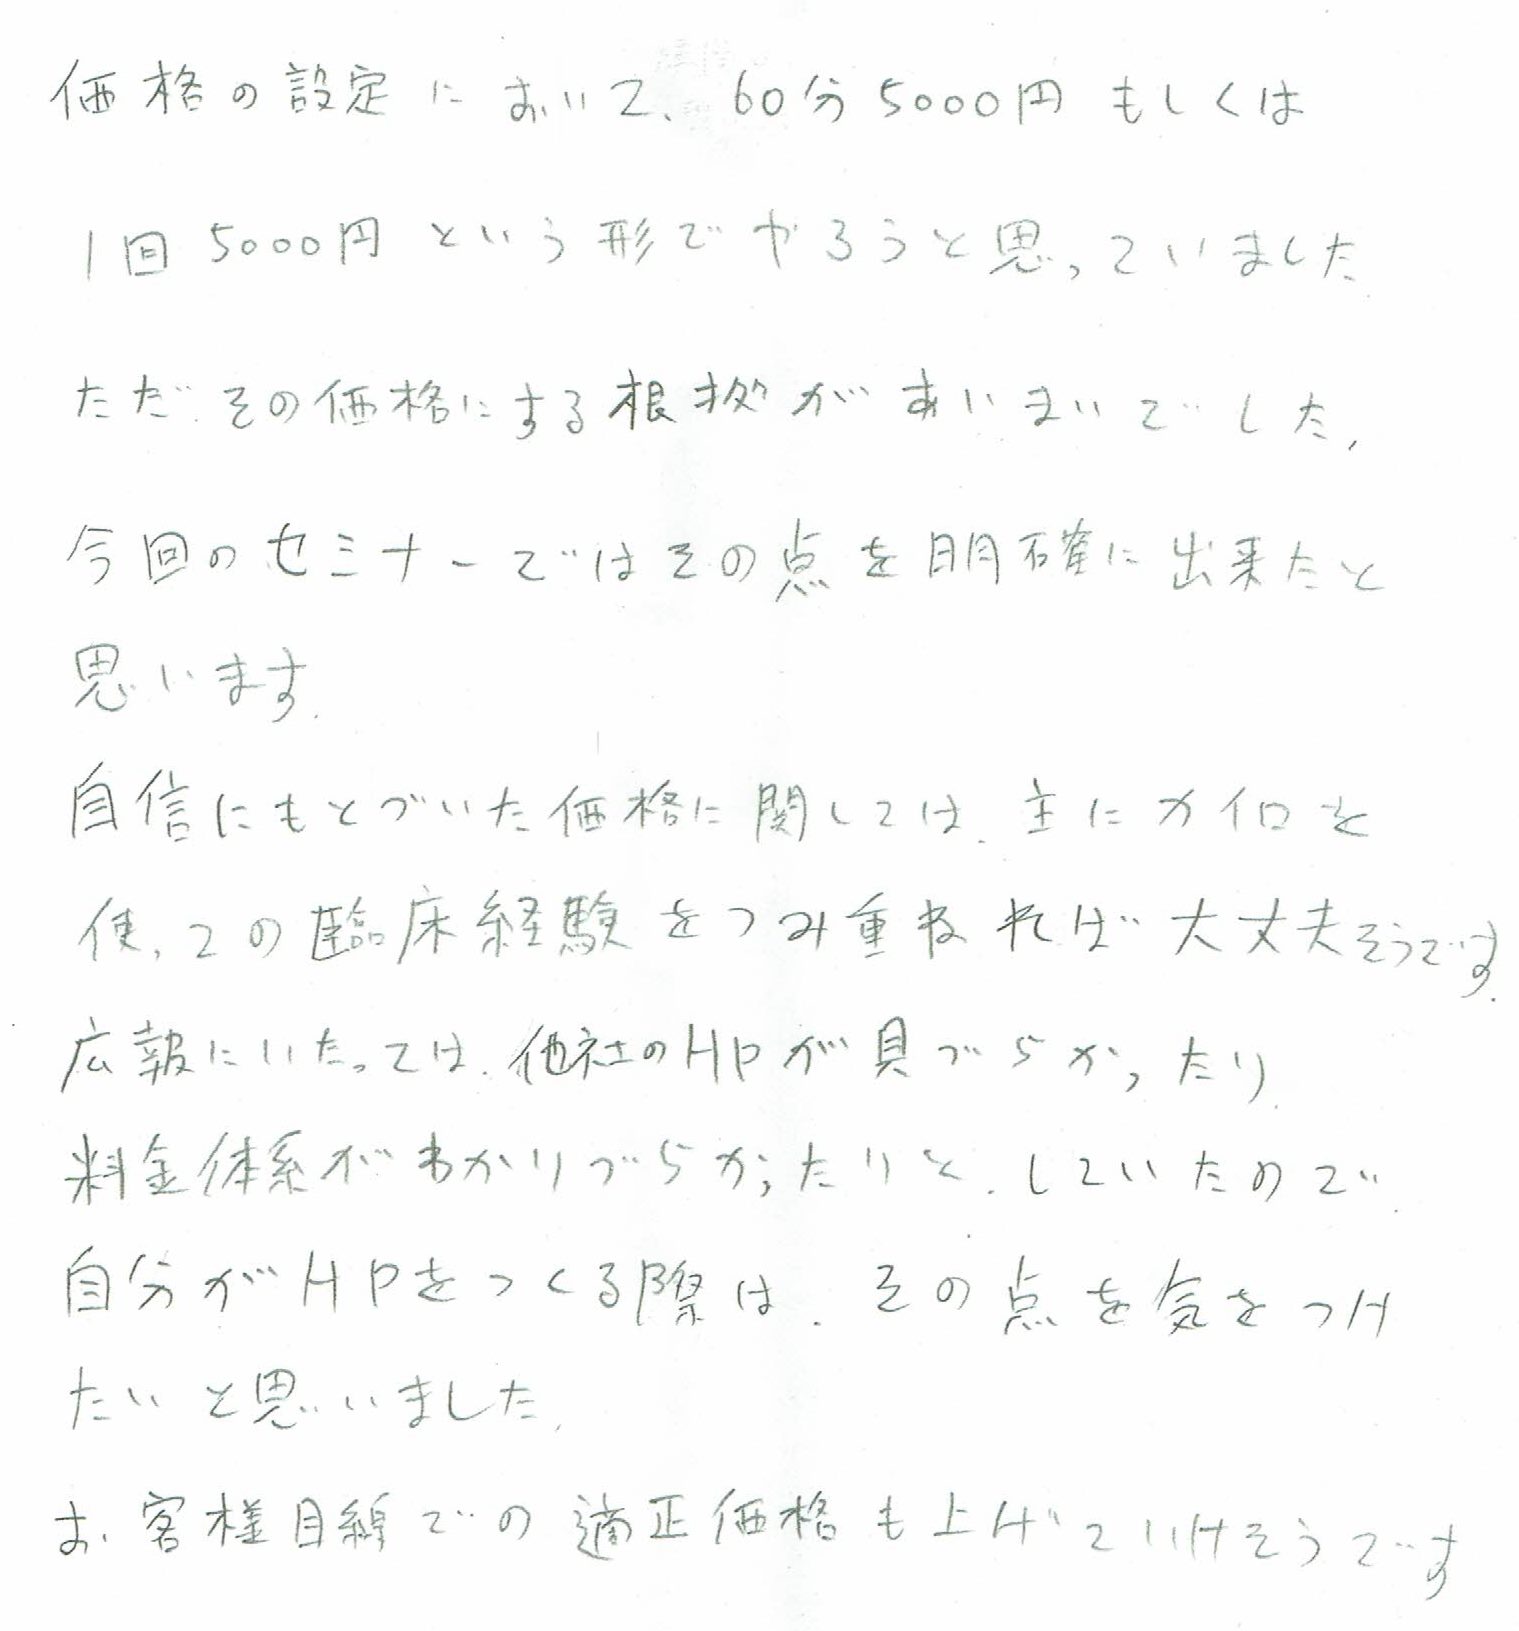 価格の設定において、60分5000円もしくは
1回5000円という形でやろうと思っていました
ただ、その価格にする根拠があいまいでした、
今回のセミナーではその点を明確に出来たと
思います.
自信にもとづいた価格に関しては、主にカイロを
使っての臨床経験をつみ重ねれば大丈夫そうです.
広報にいたっては、他社のHPが見づらかったり、
料金体系がわかりづらかったりと、していたので、
自分がHPをつくる際は、その点を気をつけ
たいと思いました、
お客様目線での適正価格も上げていけそうです